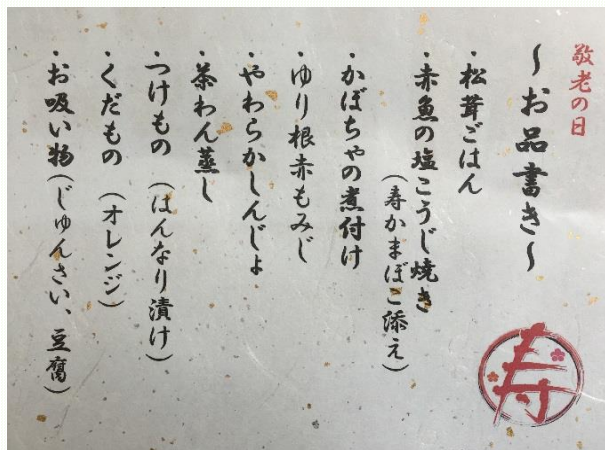 敬老の日
～お品書き～
・松茸ごはん
・赤魚の塩こうじ焼き
（寿かまぼこ添え）
・かぼちゃの煮付け
・ゆり根赤もみじ
・やわらかしんじょ
・茶わん蒸し
・つけもの（はんなり漬け）
・くだもの（オレンジ）
・お吸い物（じゅんさい、豆腐）
寿